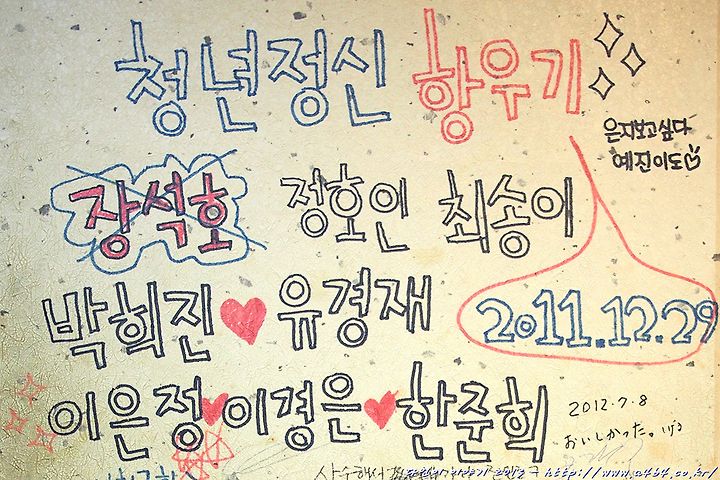 청년정신 황우기
은지보고싶다
예진이도
장석호 정호인 최송이
박희진♥유경재
2011.12.29
이은정♥이경은♥한준희
2012.7.8
おいしかった。
http://www.a4b4.co.kr/